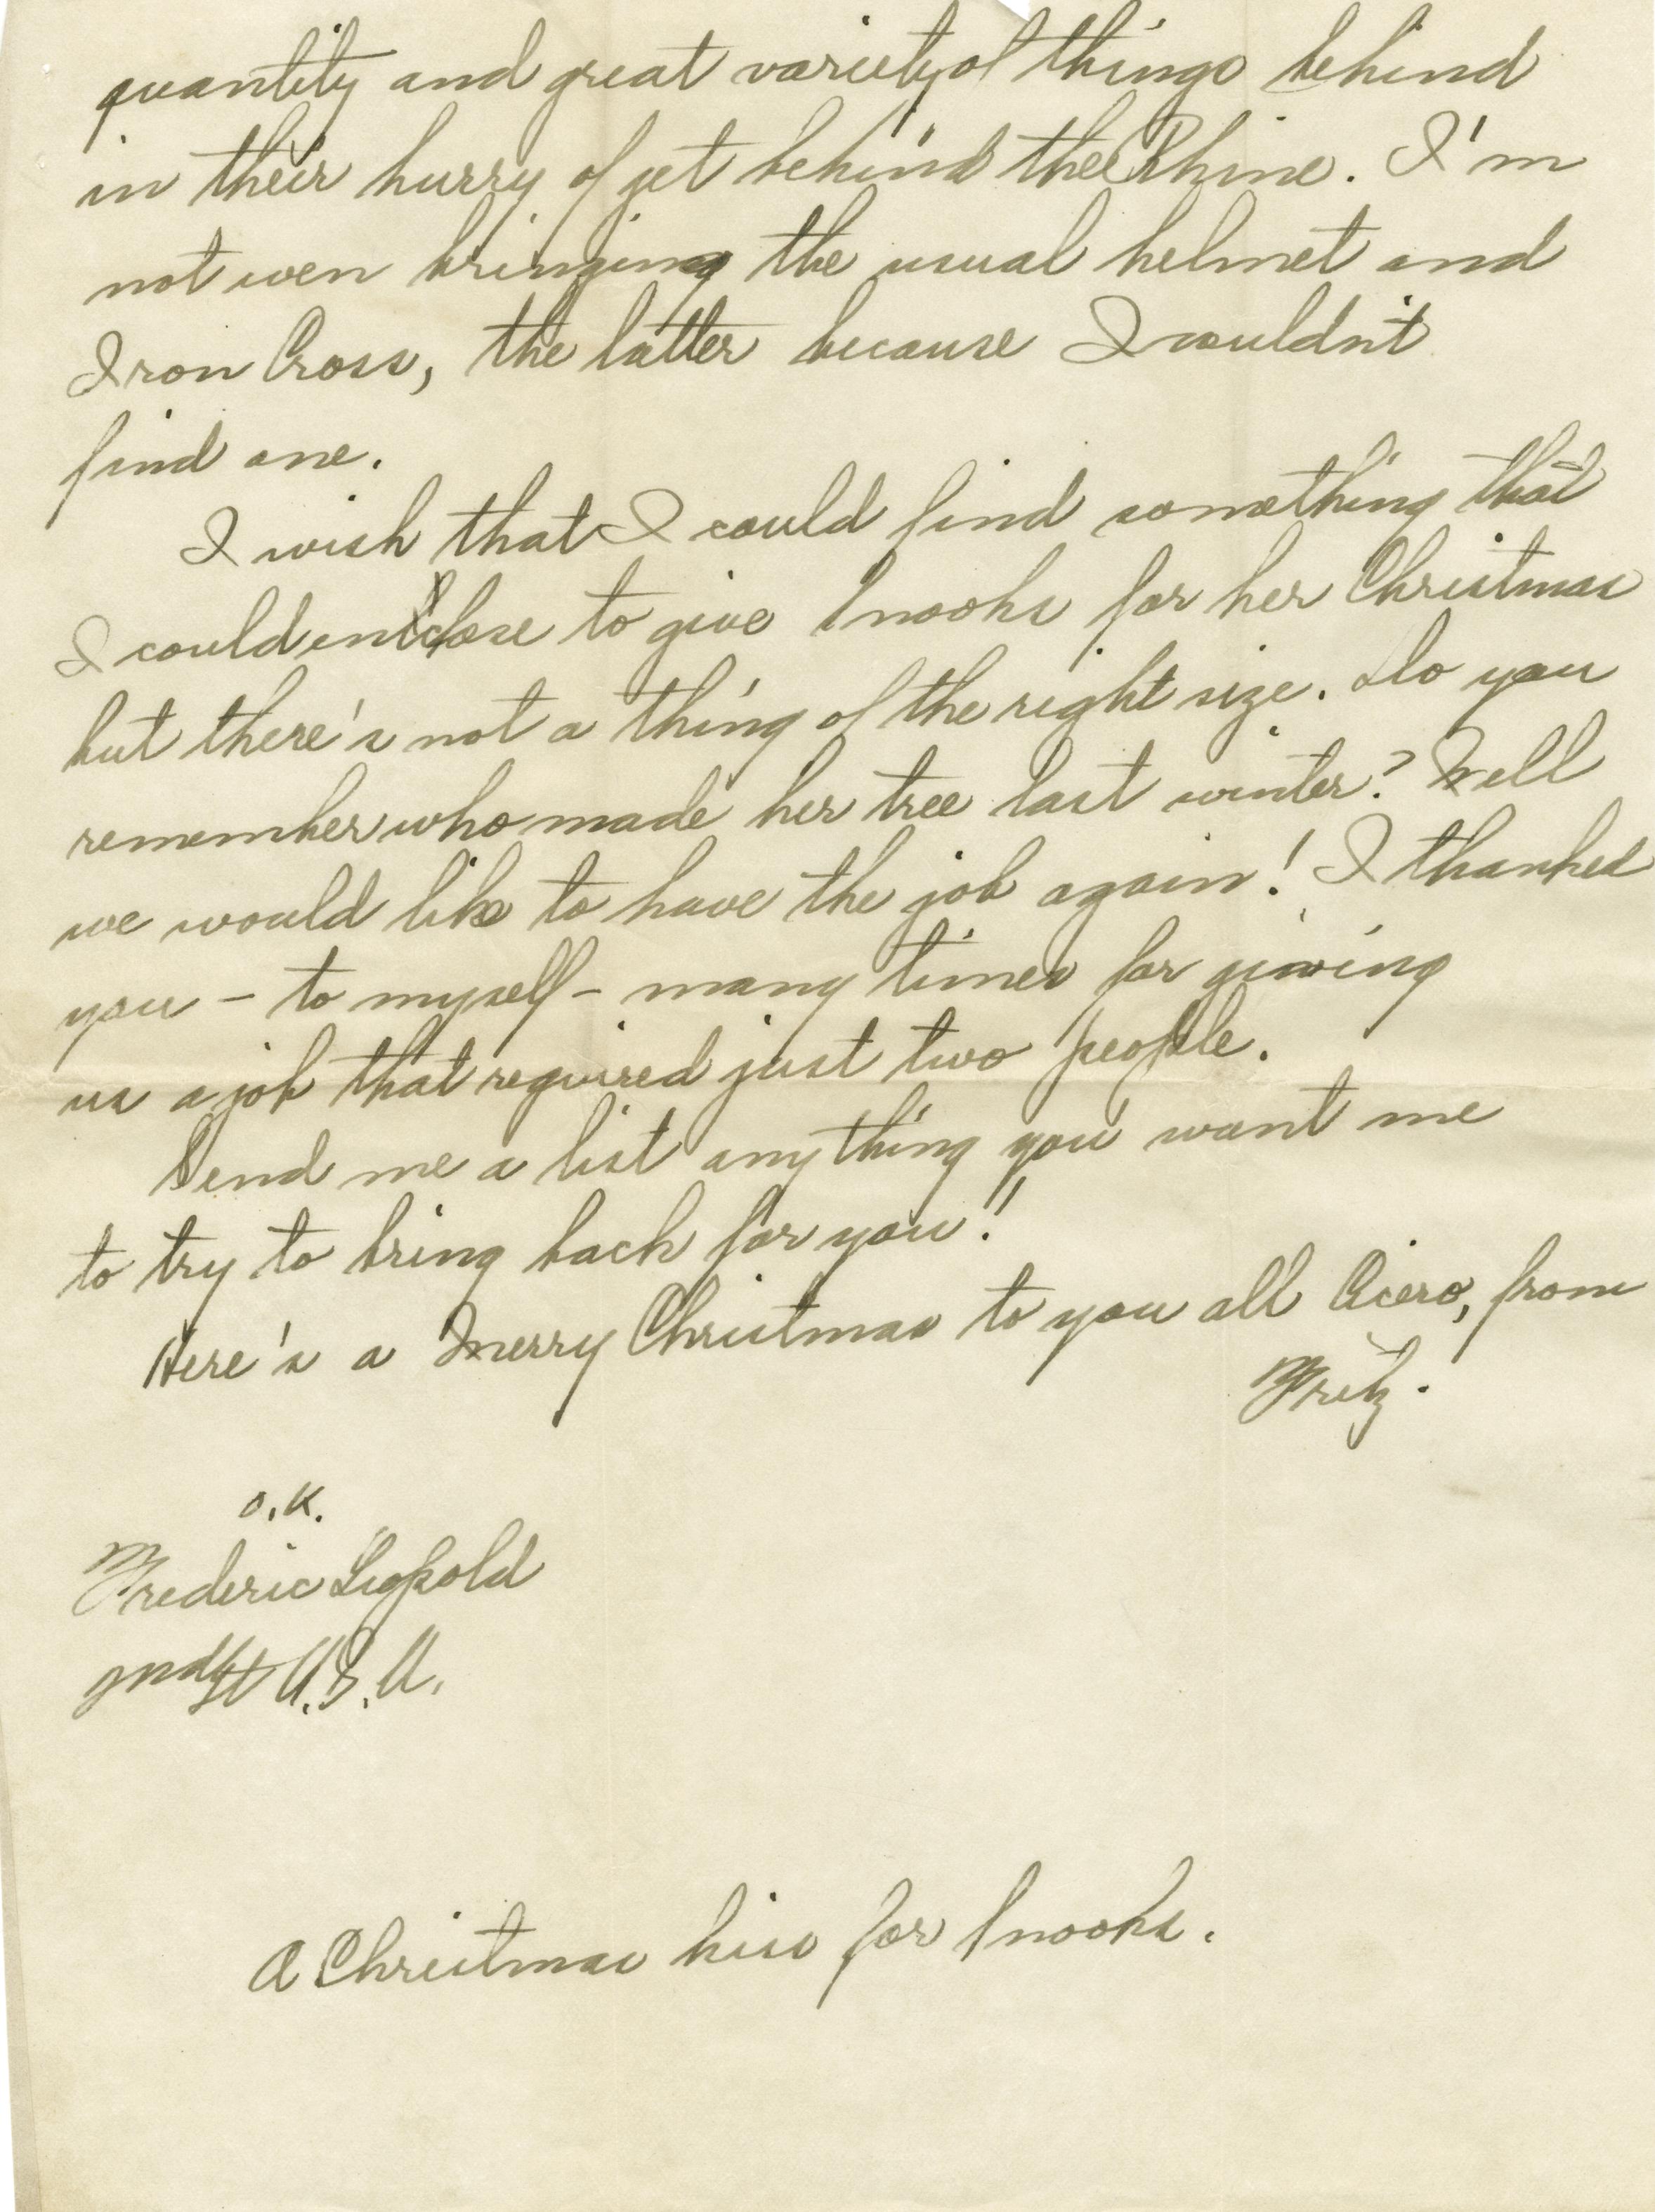 quantity and great variety of things behind
in their hurry of get behind the Rhine. I'm
not even bringing the usual helmet and
Iron Cross, the latter because I couldn't
find one.
I wish that I could find something that
I could enclose to give Snooks for her Christmas
but there's not a thing of the right size. Do you
remember who made her tree last winter? Well
we would like to have the job again! I thanked
you – to myself – many times for giving
us a job that required just two people.
Send me a list anything you want me
to try to bring back for you!
Here's a Merry Christmas to you all Cicero, from
Fritz.
O.K.
Frederic Leopold
2nd Lt A.S.A.
A Christmas kiss for Snooks.